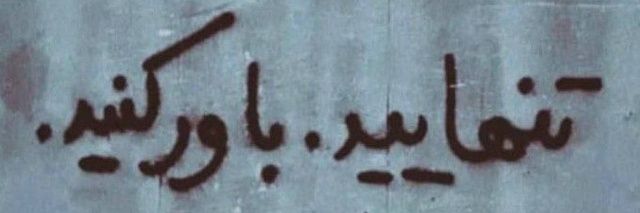 تنهایید. باور کنید.